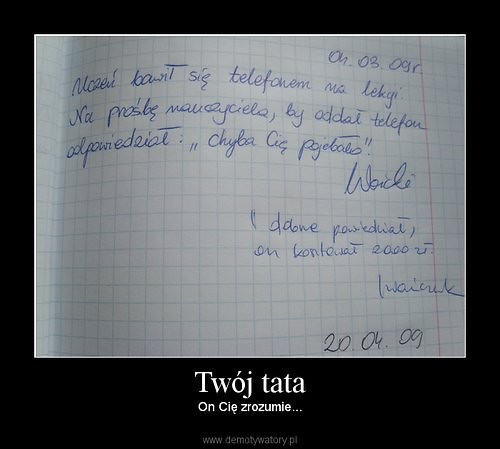 04.03.09r.
Uczeń bawił się telefonem na lekcji.
Na prośbę nauczyciela, by oddał telefon
odpowiedział: „Chyba Cię pojebało".
dobrze powiedział,
on kosztował 2000 zł.
20.04.09
Twój tata
On Cię zrozumie...
www.demotywatory.pl